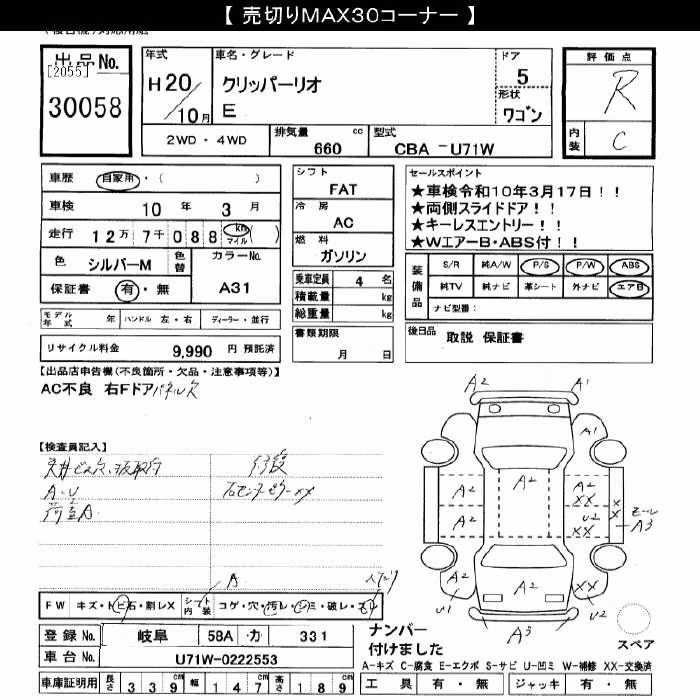 【 売切りMAX30コーナー 】
出品No.
[2055]
30058
年式
H20/10月
車名・グレード
クリッパーリオ
E
ドア
5
形状
ワゴン
評価点
R
内装
C
2WD・4WD
排気量
660 cc
型式
CBA -U71W
車歴
自家用・( )
車検
10年 3月
走行
12万7千088 km マイル( )
色
シルバーM
色替
カラーNo.
A31
保証書
有・無
シフト
FAT
冷房
AC
燃料
ガソリン
乗車定員 4 名
積載量 kg
総重量 kg
セールスポイント
★車検令和10年3月17日！！
★両側スライドドア！！
★キーレスエントリー！！
★WエアーB・ABS付！！
装備品
S/R 純A/W P/S P/W ABS
純TV 純ナビ 革シート 外ナビ エアB
ナビ型番：
モデル年式 年
ハンドル 左・右
ディーラー・並行
書類期限
月 日
後日品
取説 保証書
リサイクル料金 9,990 円 預託済
【出品店申告欄(不良箇所・欠品・注意事項等)】
AC不良 右Fドアパネル欠
【検査員記入】
A・U
荷室A
修復
右センターピラーXX
A2
A1
A1
A2
A2
A2
XX
A2
U2
XX
XX
モール
A3
A2
A2
XX
U1
U2
A3
A
FW キズ・トビ石・割レX
シート内装 コゲ・穴・汚レ・シミ・破レ・
登録No. 岐阜 58A カ 331
車台No. U71W-0222553
車庫証明用 長さ 339cm 幅 147cm 高さ 189cm
ナンバー
付けました
スペア
A－キズ C－腐食 E－エクボ S－サビ U－凹ミ W－補修 XX－交換済
工具 有・無 ジャッキ 有・無